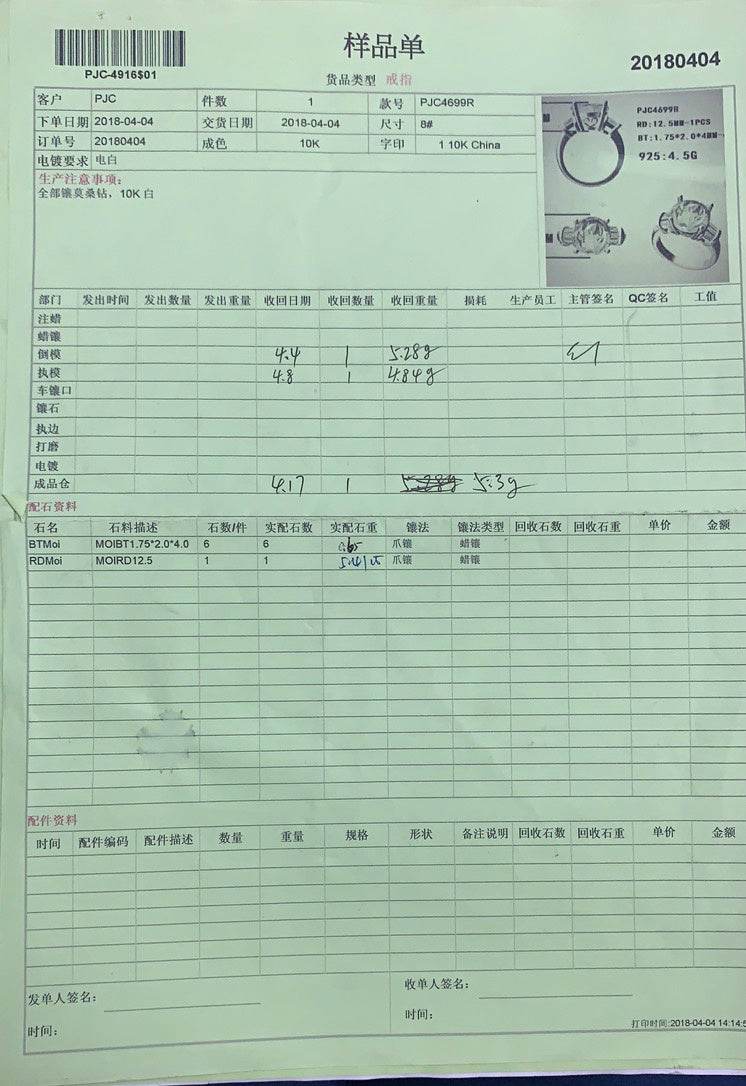 样品单
PJC-4916$01
货品类型 戒指
20180404
客户 PJC 件数 1 款号 PJC4699R
下单日期 2018-04-04 交货日期 2018-04-04 尺寸 8#
订单号 20180404 成色 10K 字印 1 10K China
电镀要求 电白
PJC4699R
RD:12.5MM-1PCS
BT:1.75*2.0*4MM
925:4.5G
生产注意事项:
全部镶莫桑钻，10K 白
部门 发出时间 发出数量 发出重量 收回日期 收回数量 收回重量 损耗 生产员工 主管签名 QC签名 工值
注蜡
蜡镶
倒模 4.4 1 5.28g
执模 4.8 1 4.84g
车镶口
镶石
执边
打磨
电镀
成品仓 4.17 1 5.3g
配石资料
石名 石料描述 石数/件 实配石数 实配石重 镶法 镶法类型 回收石数 回收石重 单价 金额
BTMoi MOIBT1.75*2.0*4.0 6 6 爪镶 蜡镶
RDMoi MOIRD12.5 1 1 爪镶 蜡镶
配件资料
时间 配件编码 配件描述 数量 重量 规格 形状 备注说明 回收石数 回收石重 单价 金额
发单人签名: 收单人签名:
时间: 时间:
打印时间:2018-04-04 14:14:5